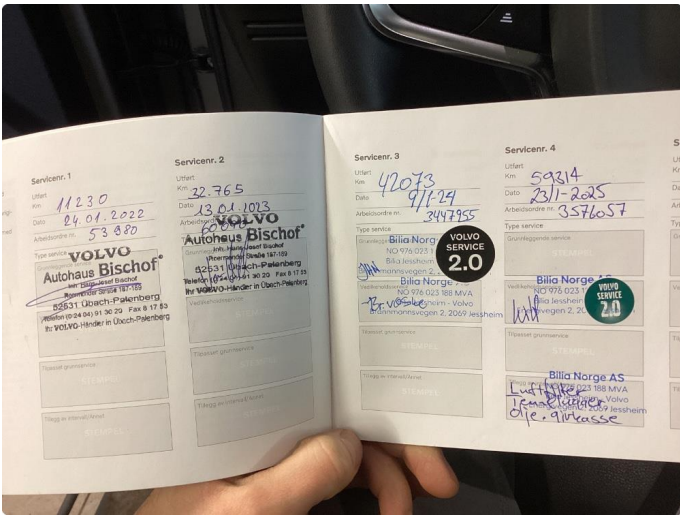 Servicenr. 1
Utført
Km 11230
Dato 24.01.2022
Arbeidsordre nr. 53980
Type service
VOLVO
Autohaus Bischof
Inh. Hans-Josef Bischof
Roermonder Straße 187-189
52531 Übach-Palenberg
Telefon (0 24 04) 91 30 20 Fax 8 17 55
Ihr VOLVO-Händler in Übach-Palenberg
Tilpasset grunnservice
STEMPEL
Tillegg av intervall/annet
STEMPEL
Servicenr. 2
Utført
Km 22.765
Dato 13.01.2023
VOLVO
Autohaus Bischof
Inh. Hans-Josef Bischof
Roermonder Straße 187-189
52531 Übach-Palenberg
Telefon (0 24 04) 91 30 20 Fax 8 17 55
Ihr VOLVO-Händler in Übach-Palenberg
Tilpasset grunnservice
STEMPEL
Tillegg av intervall/annet
STEMPEL
Servicenr. 3
Utført
Km 42073
Dato 9/1-24
Arbeidsordre nr. 3447955
Type service
Bilia Norge
NO 976 023 188
Bilia Jessheim
VOLVO
SERVICE
2.0
Bilia Norge
NO 976 023 188 MVA
Bilia Jessheim - Volvo
2069 Jessheim
Br. væske
Tilpasset grunnservice
STEMPEL
Tillegg av intervall/annet
STEMPEL
Servicenr. 4
Utført
Km 59314
Dato 23/1-2025
Arbeidsordre nr. 3576057
Type service
Grunnleggende service
STEMPEL
Bilia Norge
NO 976 023 188 MVA
Bilia Jessheim
2069 Jessheim
VOLVO
SERVICE
2.0
Tilpasset grunnservice
STEMPEL
Bilia Norge AS
976 023 188 MVA
Volvo
2069 Jessheim
Luftfilter
Olje. girkasse